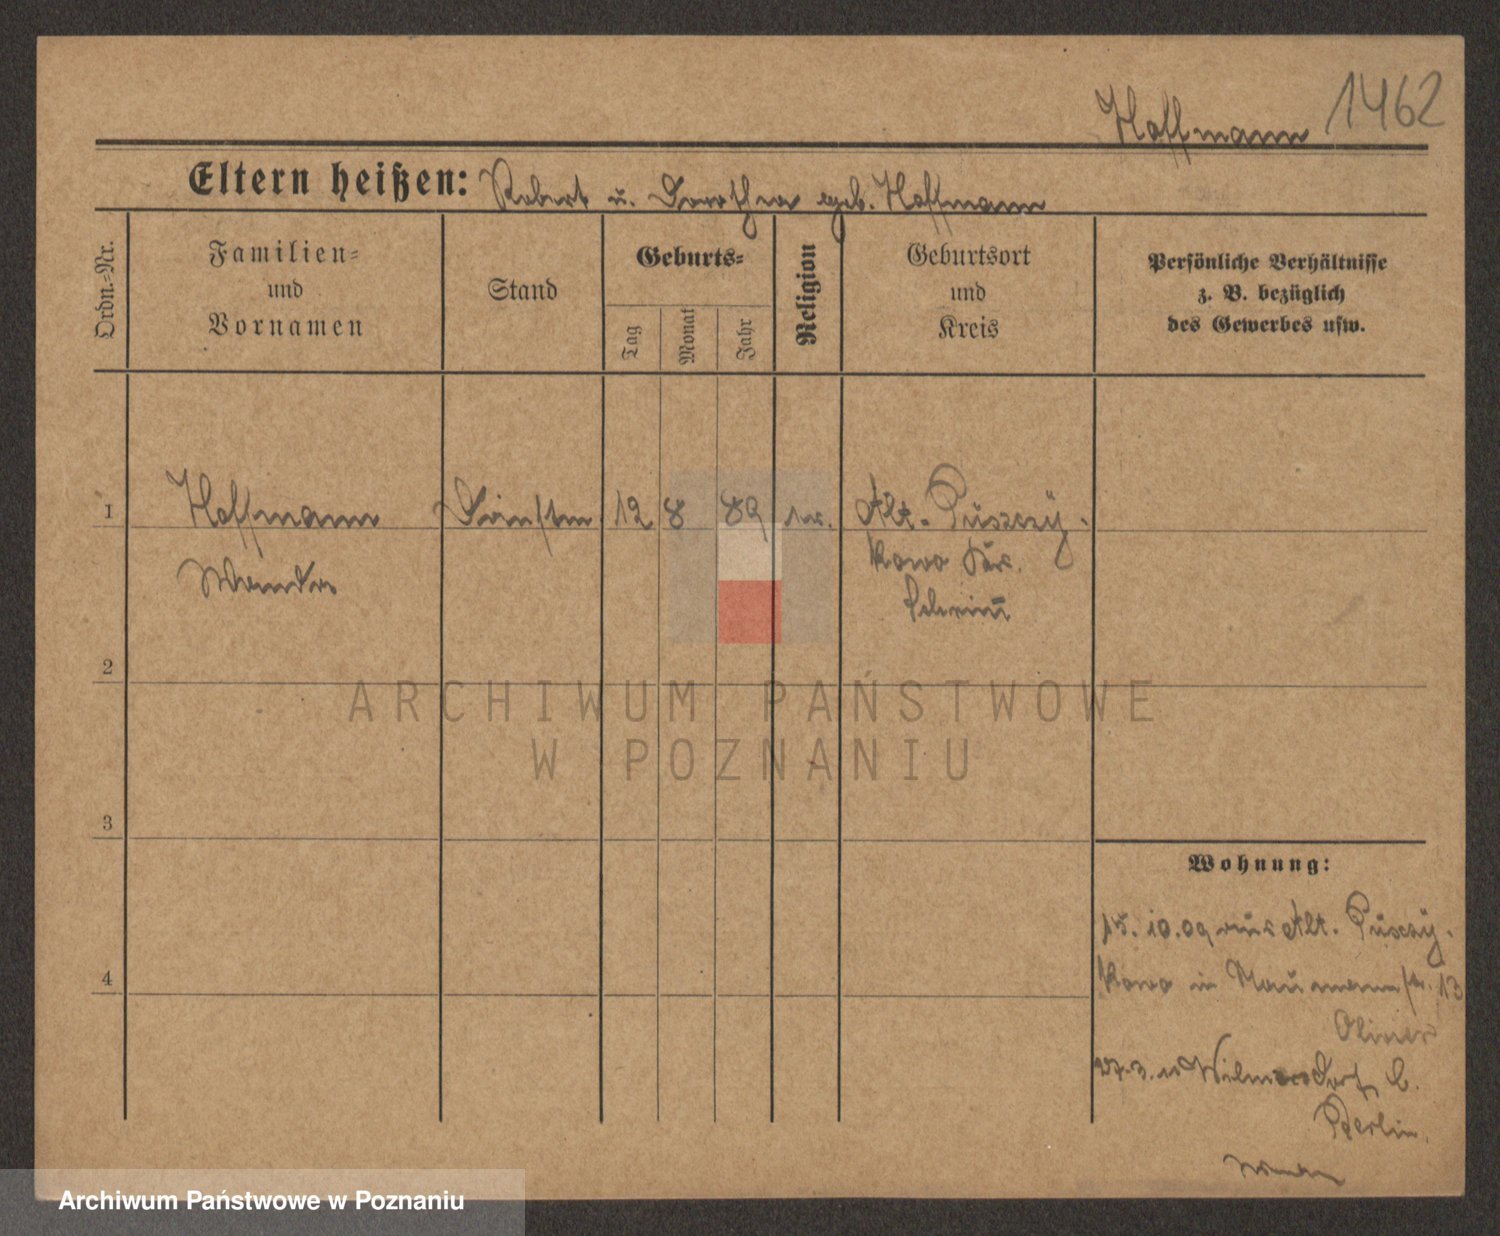 Hoffmann 1462
Eltern heißen: Robert u. Dorothea geb. Hoffmann
Ordn.=Nr.
Familien=
und
Vornamen
Stand
Geburts=
Tag
Monat
Jahr
Religion
Geburtsort
und
Kreis
Persönliche Verhältnisse
z. B. bezüglich
des Gewerbes usw.
1 Hoffmann 12 8 89 Alt-Puszczy-
Wanda kowo Kr.
Schrimm
2
ARCHIWUM PAŃSTWOWE
W POZNANIU
3
Wohnung:
15.10.09 aus Alt-Pusczy-
4
kowo in Naumannstr. 13
27.3.11 Wilmersdorf b.
Berlin.
Archiwum Państwowe w Poznaniu